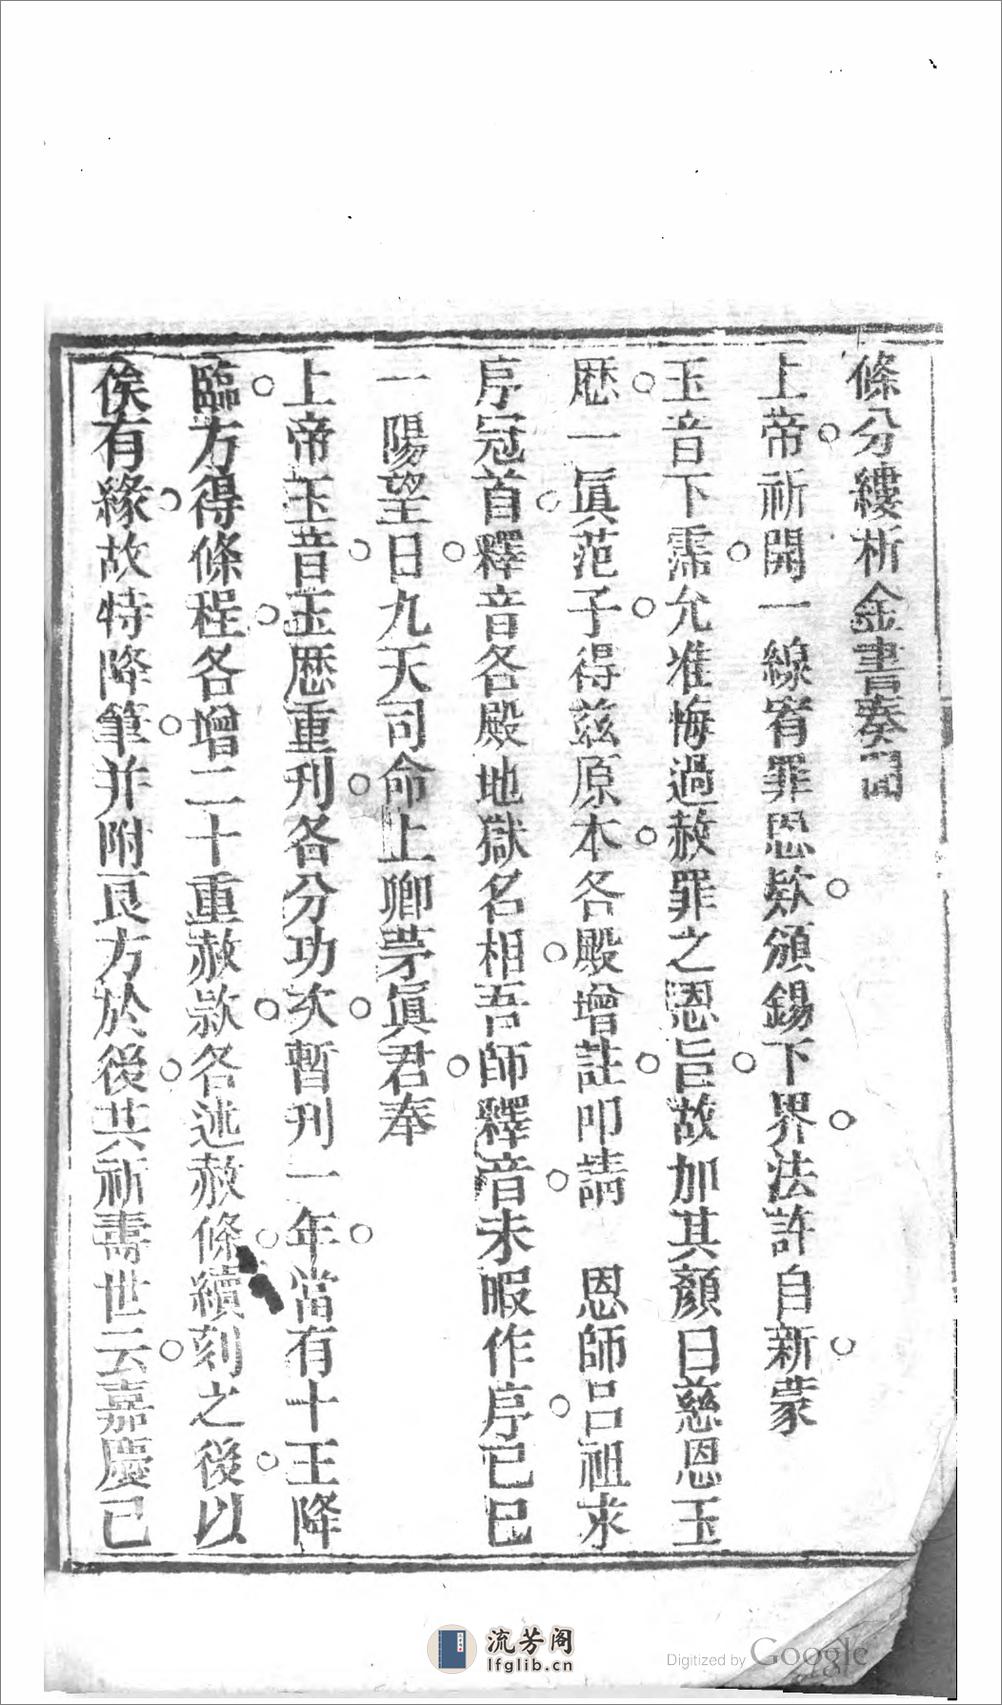 條分縷析金書奏聞
上帝祈開一線宥罪恩欵頒錫下界法許自新蒙
玉音下霈允准悔過赦罪之恩旨故加其顏曰慈恩玉
厯一眞范子得茲原本各殿增註叩請 恩師呂祖求
序冠首釋音各殿地獄名相吾師釋音未暇作序已巳
一陽望日九天司命上卿茅眞君奉
上帝玉音玉厯重刊各分功次暫刊一年當有十王降
臨方得條程各增二十重赦欵各述赦條續刻之後以
俟有緣故特降筆并附良方於後共祈壽世云嘉慶已
流芳阁
lfglib.cn
Digitized by Google